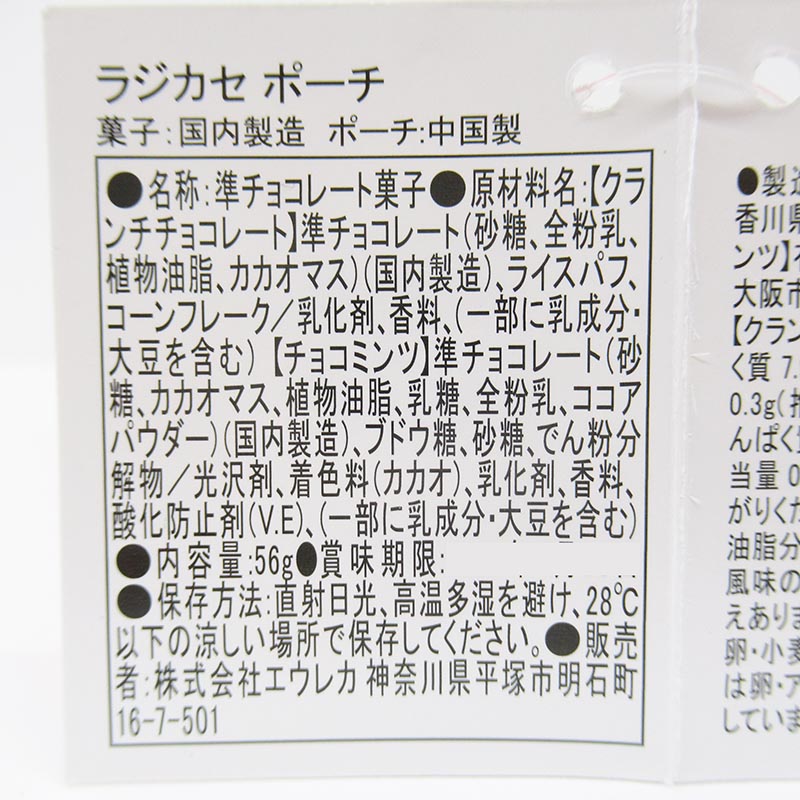 ラジカセ ポーチ
菓子:国内製造 ポーチ:中国製
●名称:準チョコレート菓子●原材料名:【クラ
ンチチョコレート】準チョコレート(砂糖、全粉乳、
植物油脂、カカオマス)(国内製造)、ライスパフ、
コーンフレーク/乳化剤、香料、(一部に乳成分・
大豆を含む)【チョコミンツ】準チョコレート(砂
糖、カカオマス、植物油脂、乳糖、全粉乳、ココア
パウダー)(国内製造)、ブドウ糖、砂糖、でん粉分
解物/光沢剤、着色料(カカオ)、乳化剤、香料、
酸化防止剤(V.E)、(一部に乳成分・大豆を含む)
●内容量:56g●賞味期限:
●保存方法:直射日光、高温多湿を避け、28℃
以下の涼しい場所で保存してください。●販売
者:株式会社エウレカ 神奈川県平塚市明石町
16-7-501
●製造
香川県
ンツ】
大阪市
【クラン
く質 7.
0.3g(
んぱく
当量 0
がりくだ
油脂分
風味の
えありま
卵・小麦
は卵・ア
していま